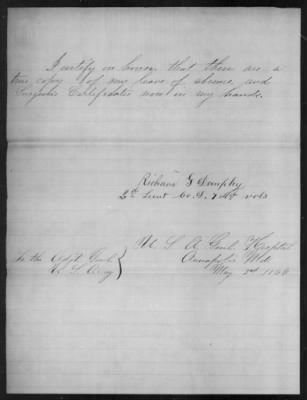 I certify on honor that these are a
true copy of my leave of absence, and
Surgeons Certificates now in my hands.
Richard G Dempky
2d Lieut Co. A, 7 Md vols
U. S. A. Genl. Hospital
Annapolis Md
May 2nd 1864
To the Adjt. Genl.
U. S. Army